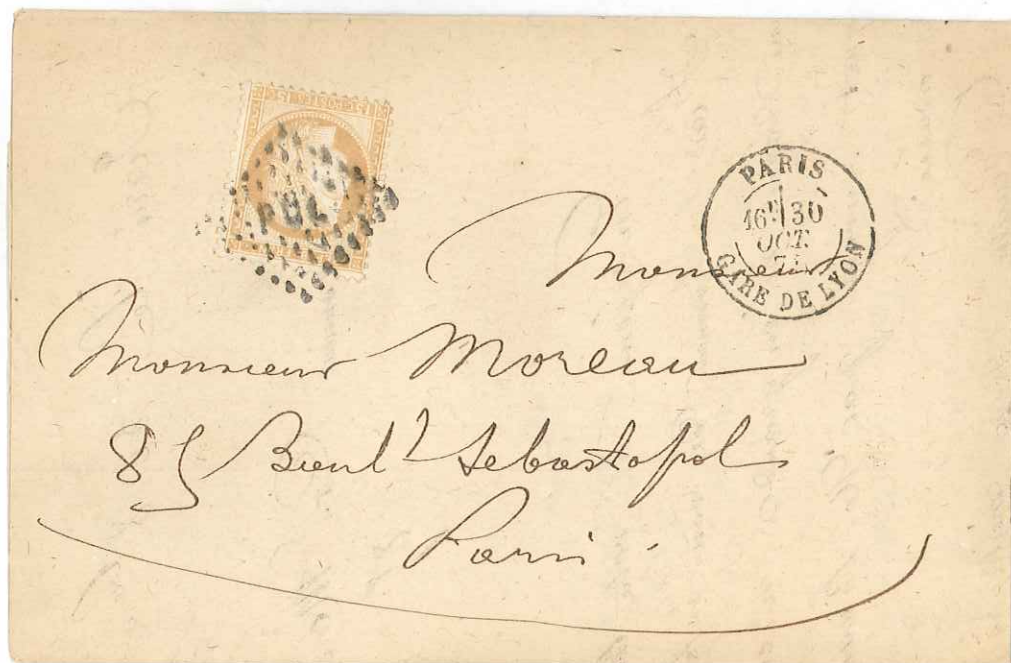 PARIS
16E 30
OCT.
GARE DE LYON
Monsieur
Monsieur Moreau
85 Boult Sebastopol
Paris.